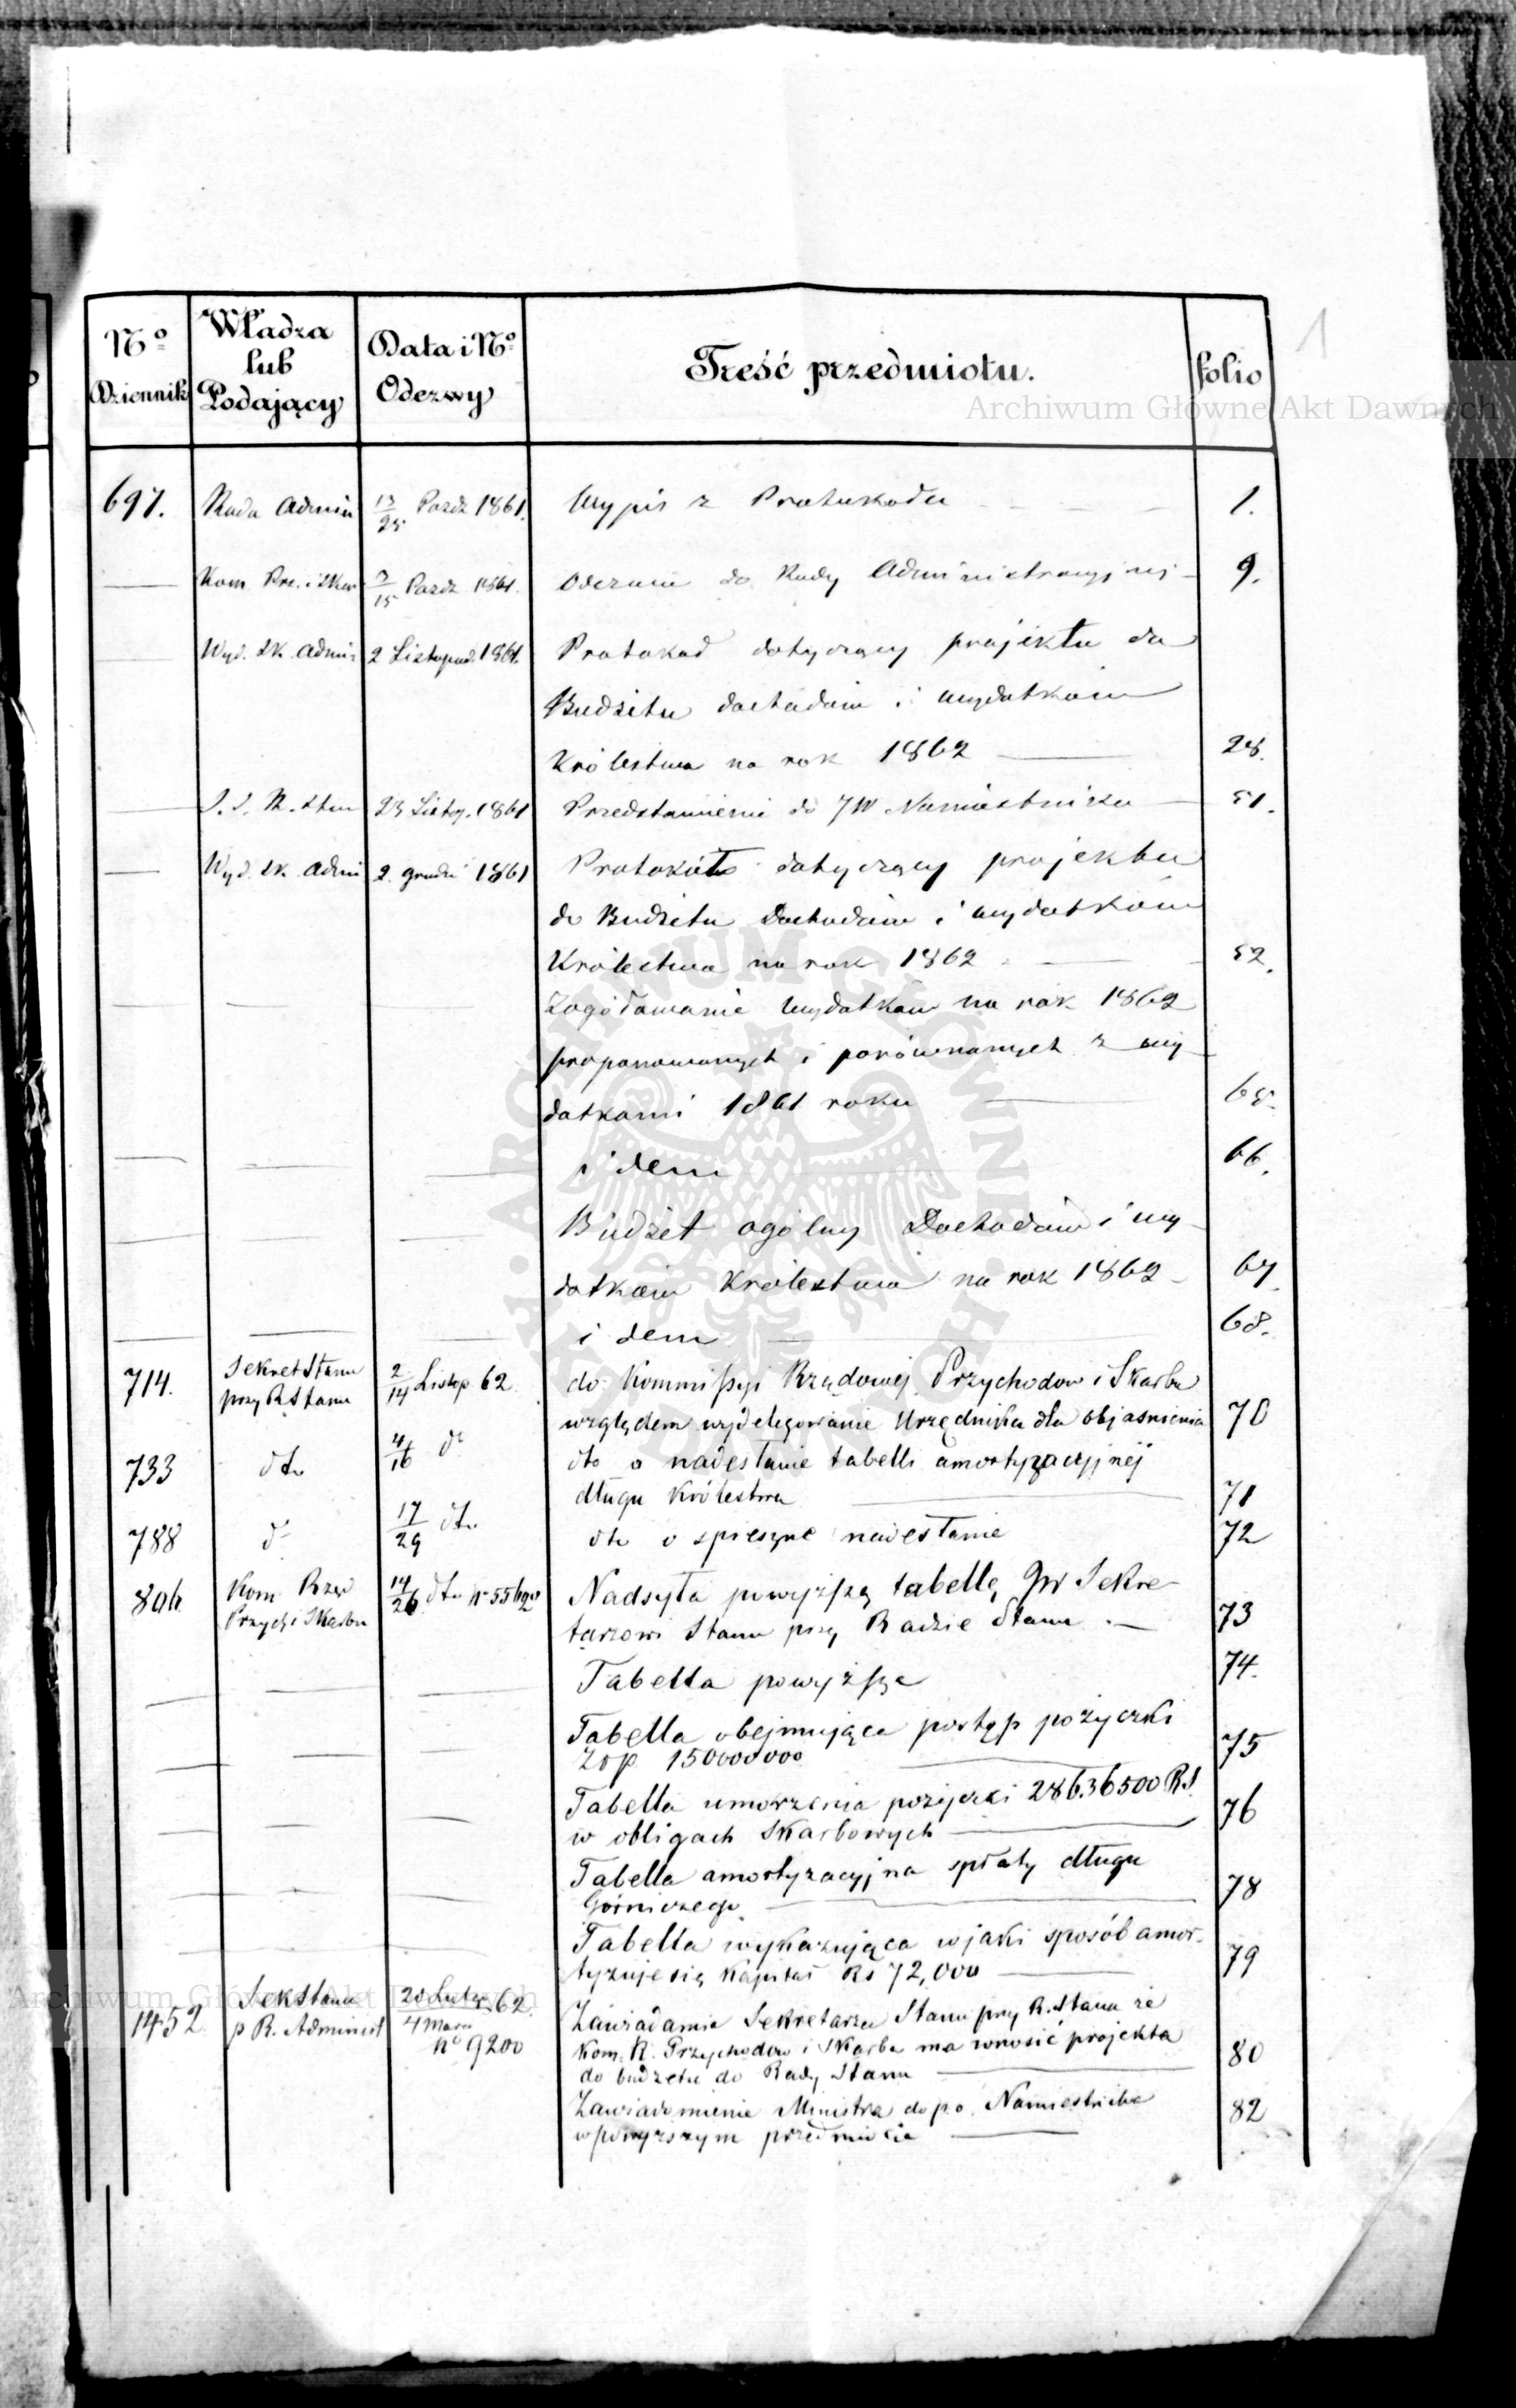 1
Nº Dziennik
Władza lub Podający
Data i Nº Odezwy
Treść przedmiotu.
folio
Archiwum Główne Akt Dawnych
697. Rada Admin 13/25 Pazdz 1861. Wypis z Protukadu 1.
Kom Prz. i Skar 3/15 Pazdz 1861. Odezwa do Rady Administracyjnej 9.
Wyd. Sk. Admi 2 Listopad. 1861. Protokoł dotyczący projektu do
Budżetu dochodów i wydatków
Królestwa na rok 1862 28.
23 Listop. 1861 Przedstawienie do JW Namiestnika 51.
Wyd. Sk. Admi 2. Grudn 1861 Protokół dotyczący projektu
do Budżetu Dochodów i wydatków
Królestwa na rok 1862 52.
wydatków na rok 1862
proponowanych i porównanych z wy
datkami 1861 roku 65.
idem 66.
Budżet ogólny Dochodów i wy
datków Królestwa na rok 1862 67
idem 68.
714. Sekret Stanu przy R Stanu 2/14 Listop 62. do Kommissyi Rządowej Przychodow i Skarbu
względem wydelegowanie Urzędnika dla objasnienia 70
733 dto 4/16 do dto o nadesłanie tabelli amortyzacyjnéj
długu Królestwa 71
788 do 17/29 dto dto o spieszne nadesłanie 72
806 Kom Rząd Przych i Skarbu 14/26 dto Nr 55692 Nadsyła powyższą tabellę JW Sekre
tarzowi Stanu przy Radzie Stanu 73
Tabella powyższa 74.
Tabella obejmująca postęp pożyczki
Złp 150000000 75
Tabella umorzenia pożyczki 28636500 RS.
w obligach Skarbowych 76
Tabella amortyzacyjna spłaty długu
Górniczego 78
Tabella wykazująca w jaki sposób amor
tyzuje się Kapitał Rs 72,000 79
1452. Sek Stanu p R. Administ 20 Lutego/4 Marca 62. Nº 9200 Zawiadamia Sekretarza Stanu przy R. Stanu że
Kom. R. Przychodow i Skarbu ma wnosić projekta
do budżetu do Rady Stanu 80
Zawiadomienie Ministra do p. o. Namiestnika
w powyższym przedmiocie 82
Archiwum Główne Akt Dawnych
ARCHIWUM GŁÓWNE AKT DAWNYCH